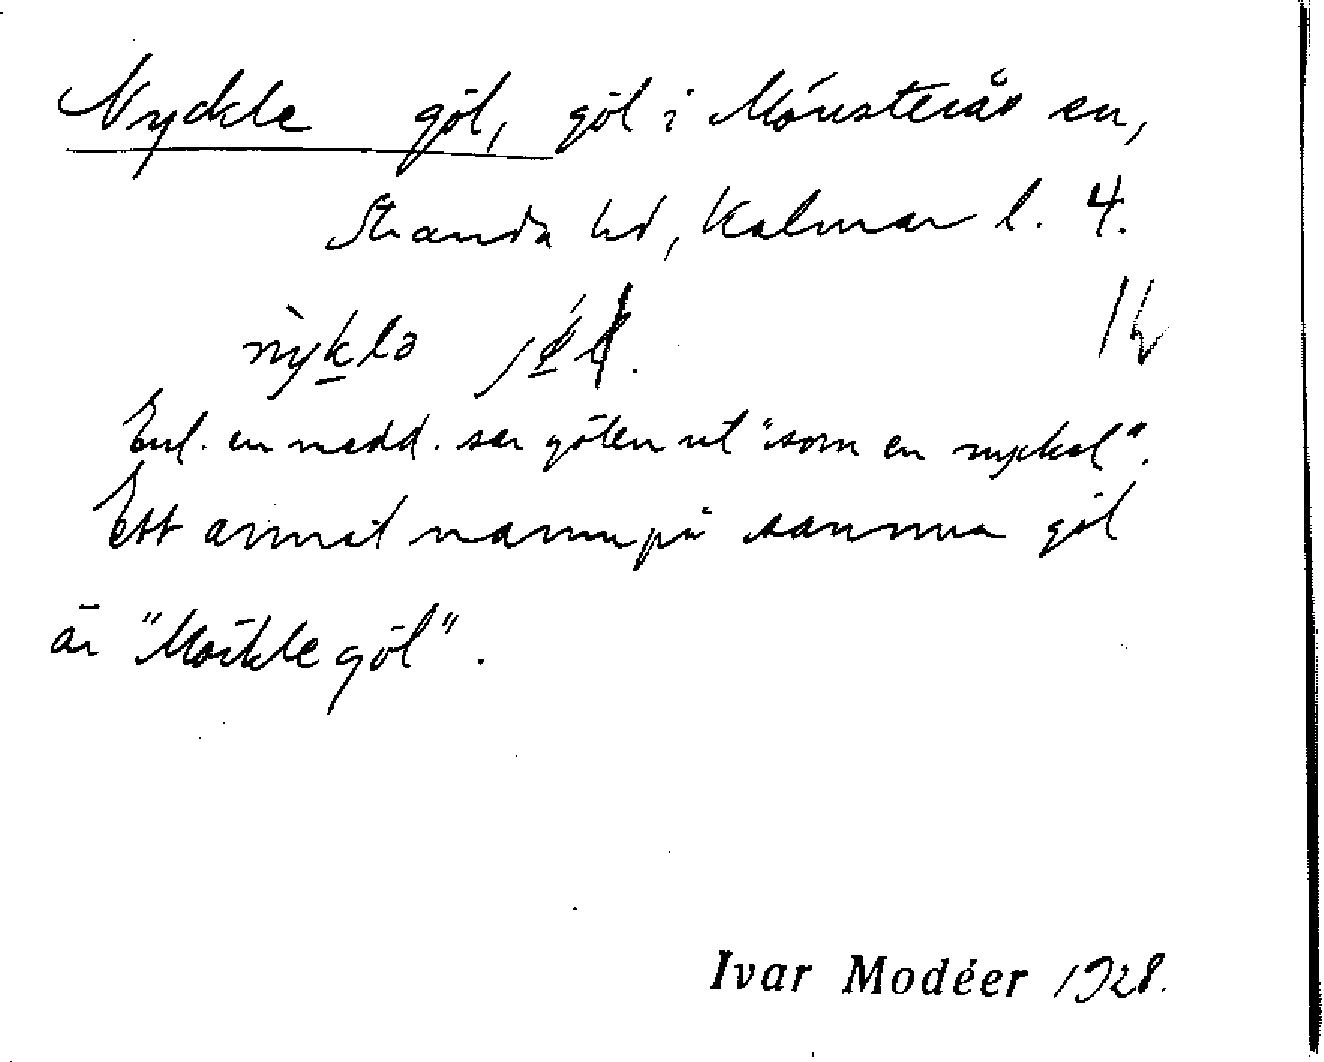 Nyckle göl, göl i Mönsterås sn,
Stranda hd, Kalmar l. 4.
nỳklə
Enl. en medd. ser gölen ut "som en nyckel".
Ett annat namn på samma göl
är "Mörkle göl".
Ivar Modéer 1928.